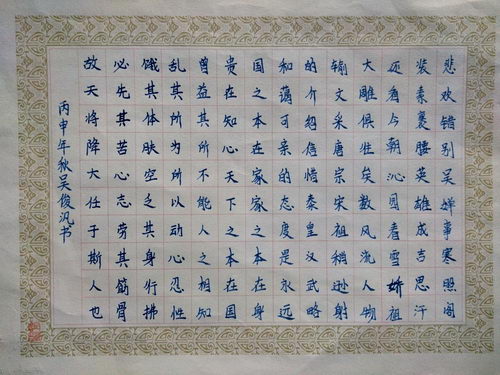 悲欢错别吴婵事寒照阁
装素裹腰英雄成吉思汗
还看与朝沁园春雪娇祖
大雕俱往矣数风流人物
输文采唐宗宋祖稍逊射
的介绍信惜秦皇汉武略
和蔼可亲的态度是永远
国之本在家家之本在身
贵在知心天下之本在国
曾益其所不能人之相知
乱其所为所以动心忍性
饿其体肤空乏其身行拂
必先其苦心志劳其筋骨
故天将降大任于斯人也
丙申年秋吴俊汎书